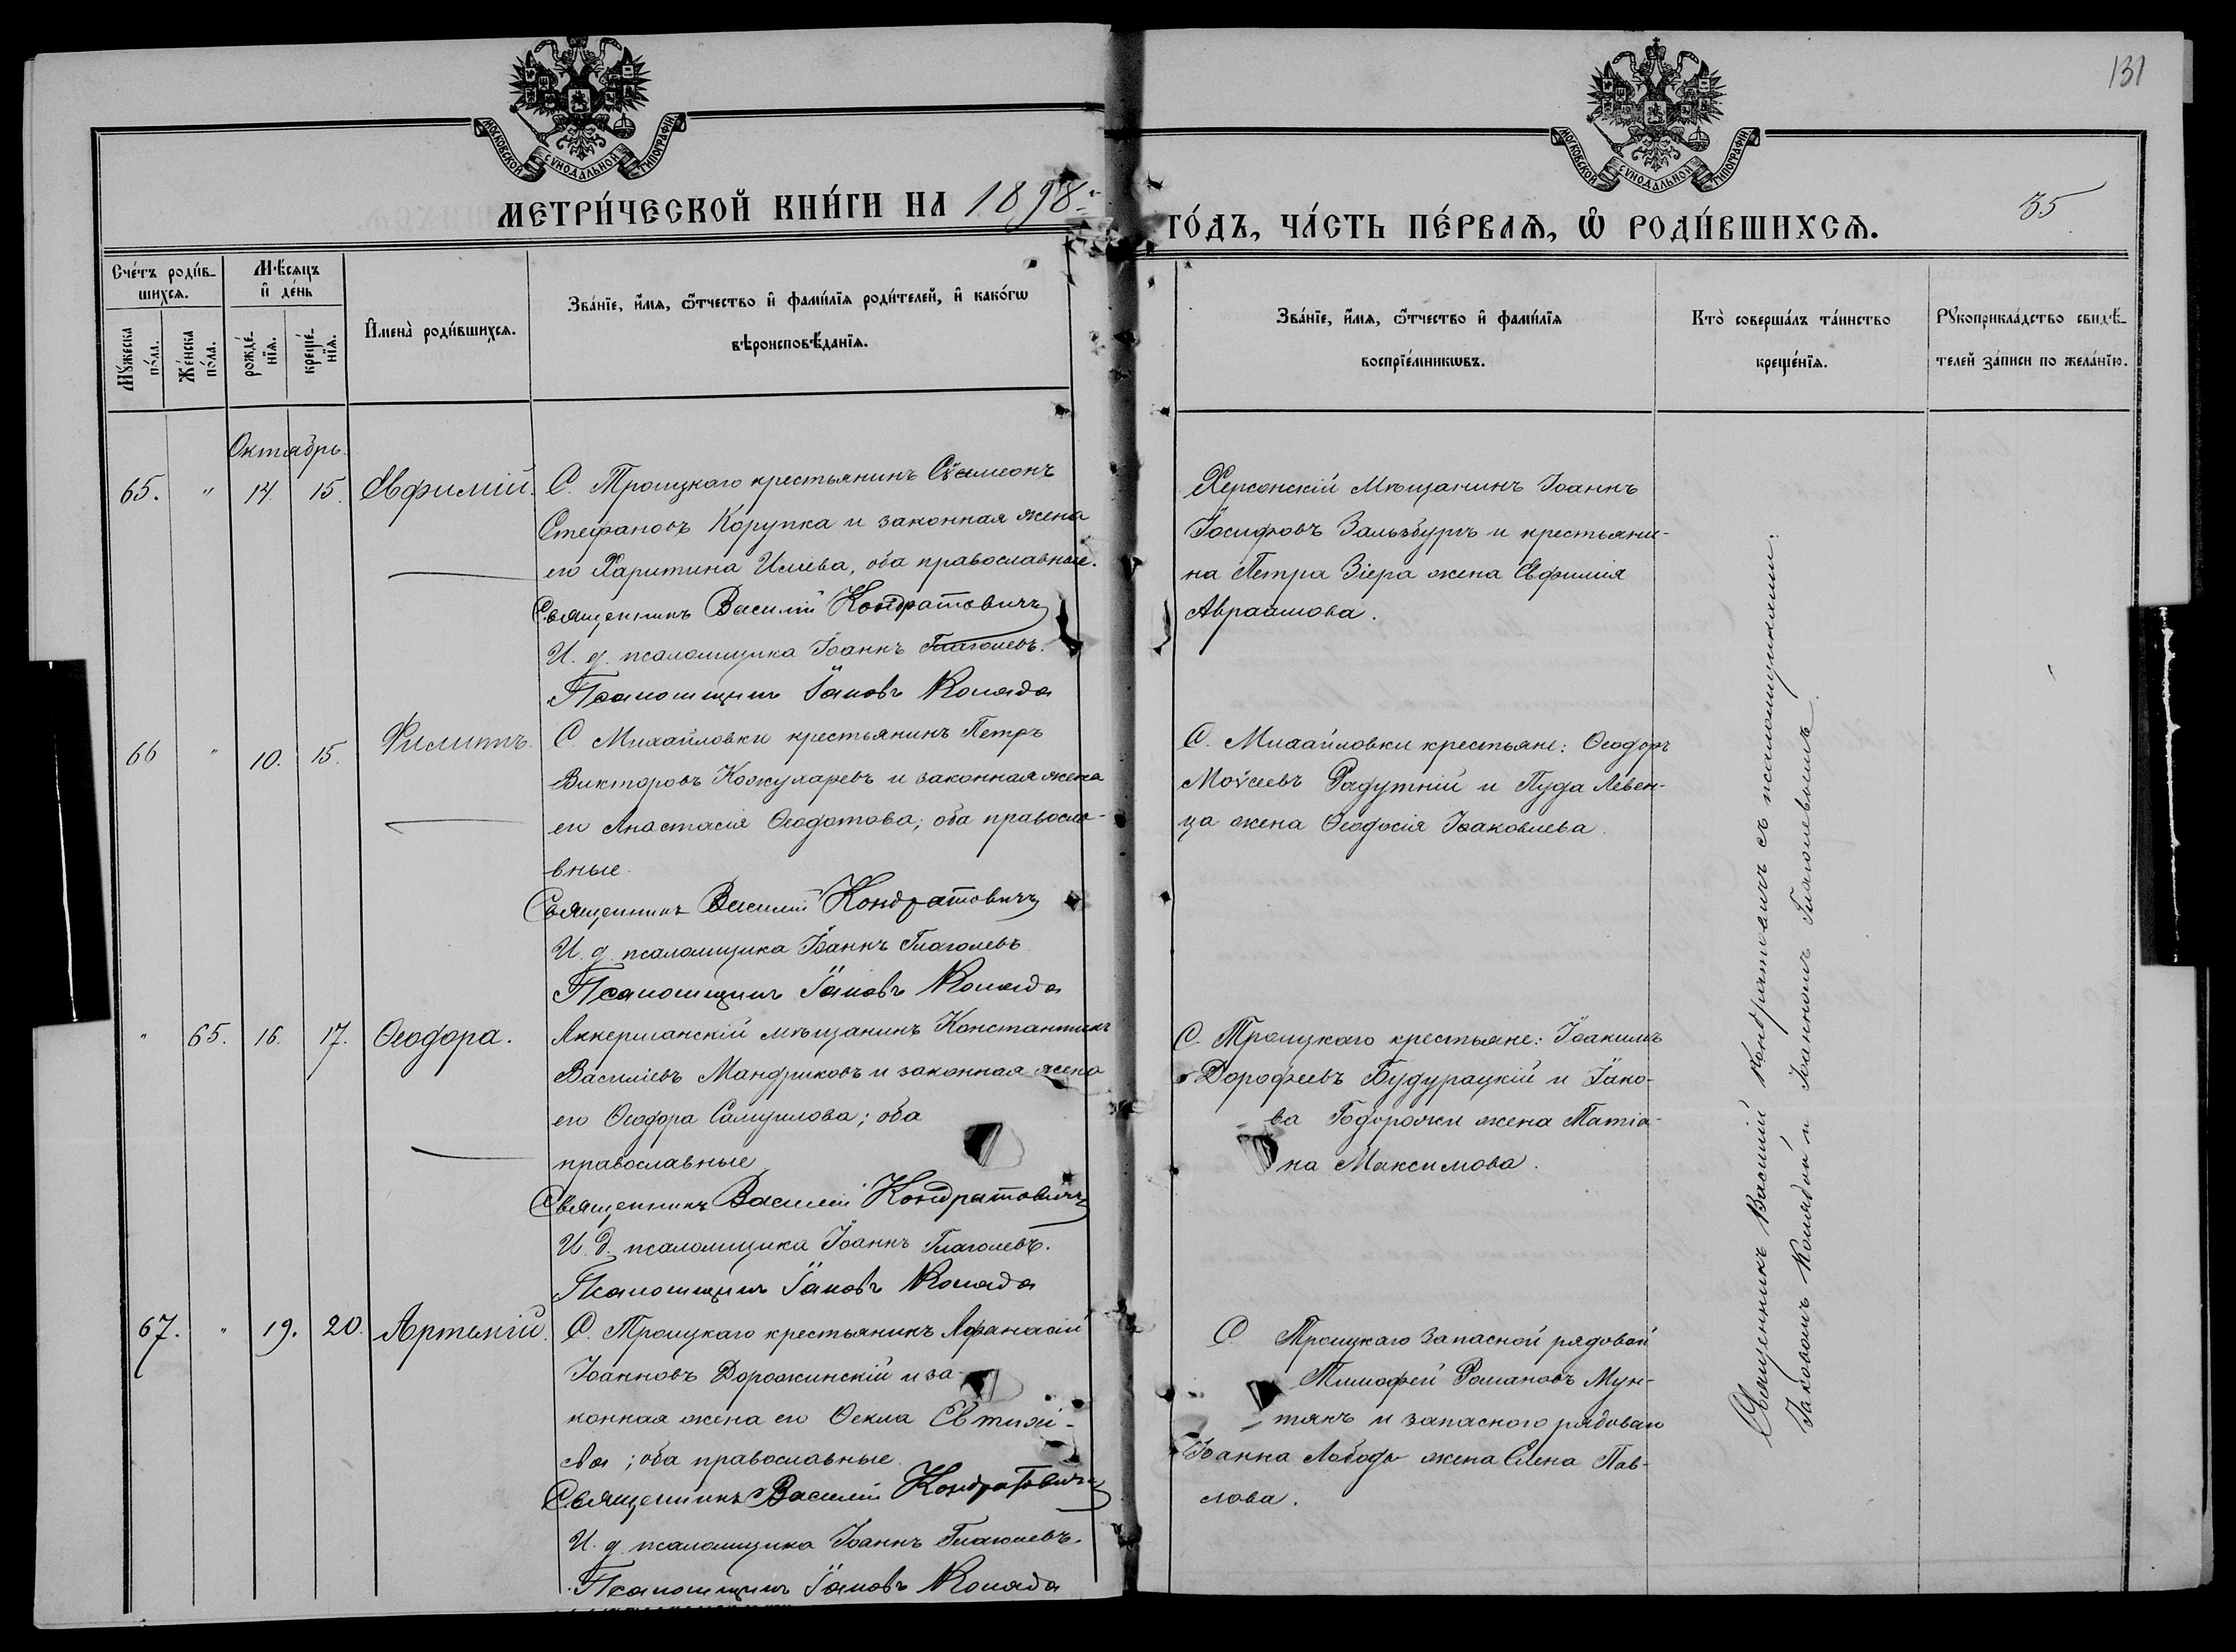 131
МОСКОВСКОЙ СѴНОДАЛЬНОЙ ТИПОГРАФІИ
МОСКОВСКОЙ СѴНОДАЛЬНОЙ ТИПОГРАФІИ
МЕТРИ́ЧЕСКОЙ КНИ́ГИ НА 1898
ГО́ДЪ, ЧА́СТЬ ПЕ́РВАѦ, Ѿ РОДИ́ВШИХСѦ.
35
Сче́тъ роди́в-
шихсѧ.
Мꙋ́жеска
по́ла.
Же́нска
по́ла.
Мѣ́сѧцъ
и҆ де́нь
рожде́-
нїѧ.
креще́-
нїѧ.
И҆мена̀ роди́вшихсѧ.
Зва́нїе, и҆́мѧ, ѻ҆́тчество и҆ фами́лїѧ роди́телей, и҆ како́гѡ
вѣроисповѣ́данїѧ.
Зва́нїе, и҆́мѧ, ѻ҆́тчество и҆ фами́лїѧ
воспрїе́мникѡвъ.
Кто̀ соверша́лъ та́инство
креще́нїѧ.
Рꙋкоприкла́дство свидѣ́-
телей за́писи по жела́нїю.
Октябрь.
65. " 14 15. Евфимій.
С. Троицкаго крестьянинъ Сѵмеонъ
Стефановъ Корупка и законная жена
его Харитина Илиева, оба православные.
Священникъ Василій Кондратовичъ
И. д. псаломщика Іоаннъ Глаголевъ.
Псаломщикъ Іаковъ Коляда
Херсонскій мѣщанинъ Іоаннъ
Іосифовъ Зальзбургъ и крестьяни-
на Петра Зіера жена Евфимія
Авраамова.
66 " 10. 15. Филиппъ.
С. Михайловки крестьянинъ Петръ
Викторовъ Кожухаревъ и законная жена
его Анастасія Ѳеодотова; оба правосла-
вные.
Священникъ Василій Кондратовичъ
И. д. псаломщика Іоаннъ Глаголевъ
Псаломщикъ Іаковъ Коляда
С. Михайловки крестьяне: Ѳеодоръ
Моѵсеевъ Радутній и Пуда Левен-
ца жена Ѳеодосія Іаковлева.
" 65. 16. 17. Ѳеодора.
Аккерманскій мѣщанинъ Константинъ
Василіевъ Мандриковъ и законная жена
его Ѳеодора Самуилова; оба
православные
Священникъ Василій Кондратовичъ
И. д. псаломщика Іоаннъ Глаголевъ.
Псаломщикъ Іаковъ Коляда
С. Троицкаго крестьяне: Іоакимъ
Дорофеевъ Будурацкій и Іако-
ва Тодорожки жена Татіа-
на Максимова.
67. " 19. 20. Артемій.
С. Троицкаго крестьянинъ Афанасій
Іоанновъ Дорожинскій и за-
конная жена его Ѳекла Евтихі-
ева; оба православные.
Священникъ Василій Кондратовичъ
И. д. псаломщика Іоаннъ Глаголевъ.
Псаломщикъ Іаковъ Коляда
С. Троицкаго запасной рядовой
Тимофей Романовъ Мун-
тянъ и запасного рядоваго
Іоанна Лободы жена Елена Пав-
лова.
Священникъ Василій Кондратовичъ съ псаломщиками:
Іаковомъ Колядой и Іоанномъ Глаголевымъ.